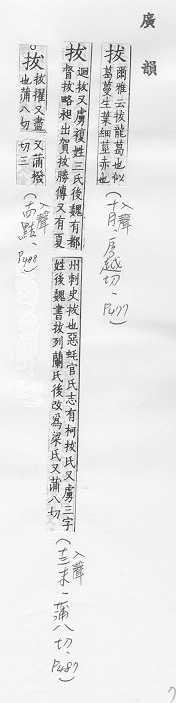 廣韻
拔
爾雅云拔蘢葛也似
葛蔓生葉細莖赤也
(入聲
十月、房越切、P477)
拔
迴拔又虜複姓三氏後魏有都
督拔略昶出賀拔勝傳又有夏
州刺史拔也惡蚝官氏志有柯拔氏又虜三字
姓後魏書拔列蘭氏後改為梁氏又蒲八切
(入聲
十三末、蒲八切、P487)
拔
拔擢又盡
也蒲八切
又蒲撥
切三
(入聲
十四黠、P488)